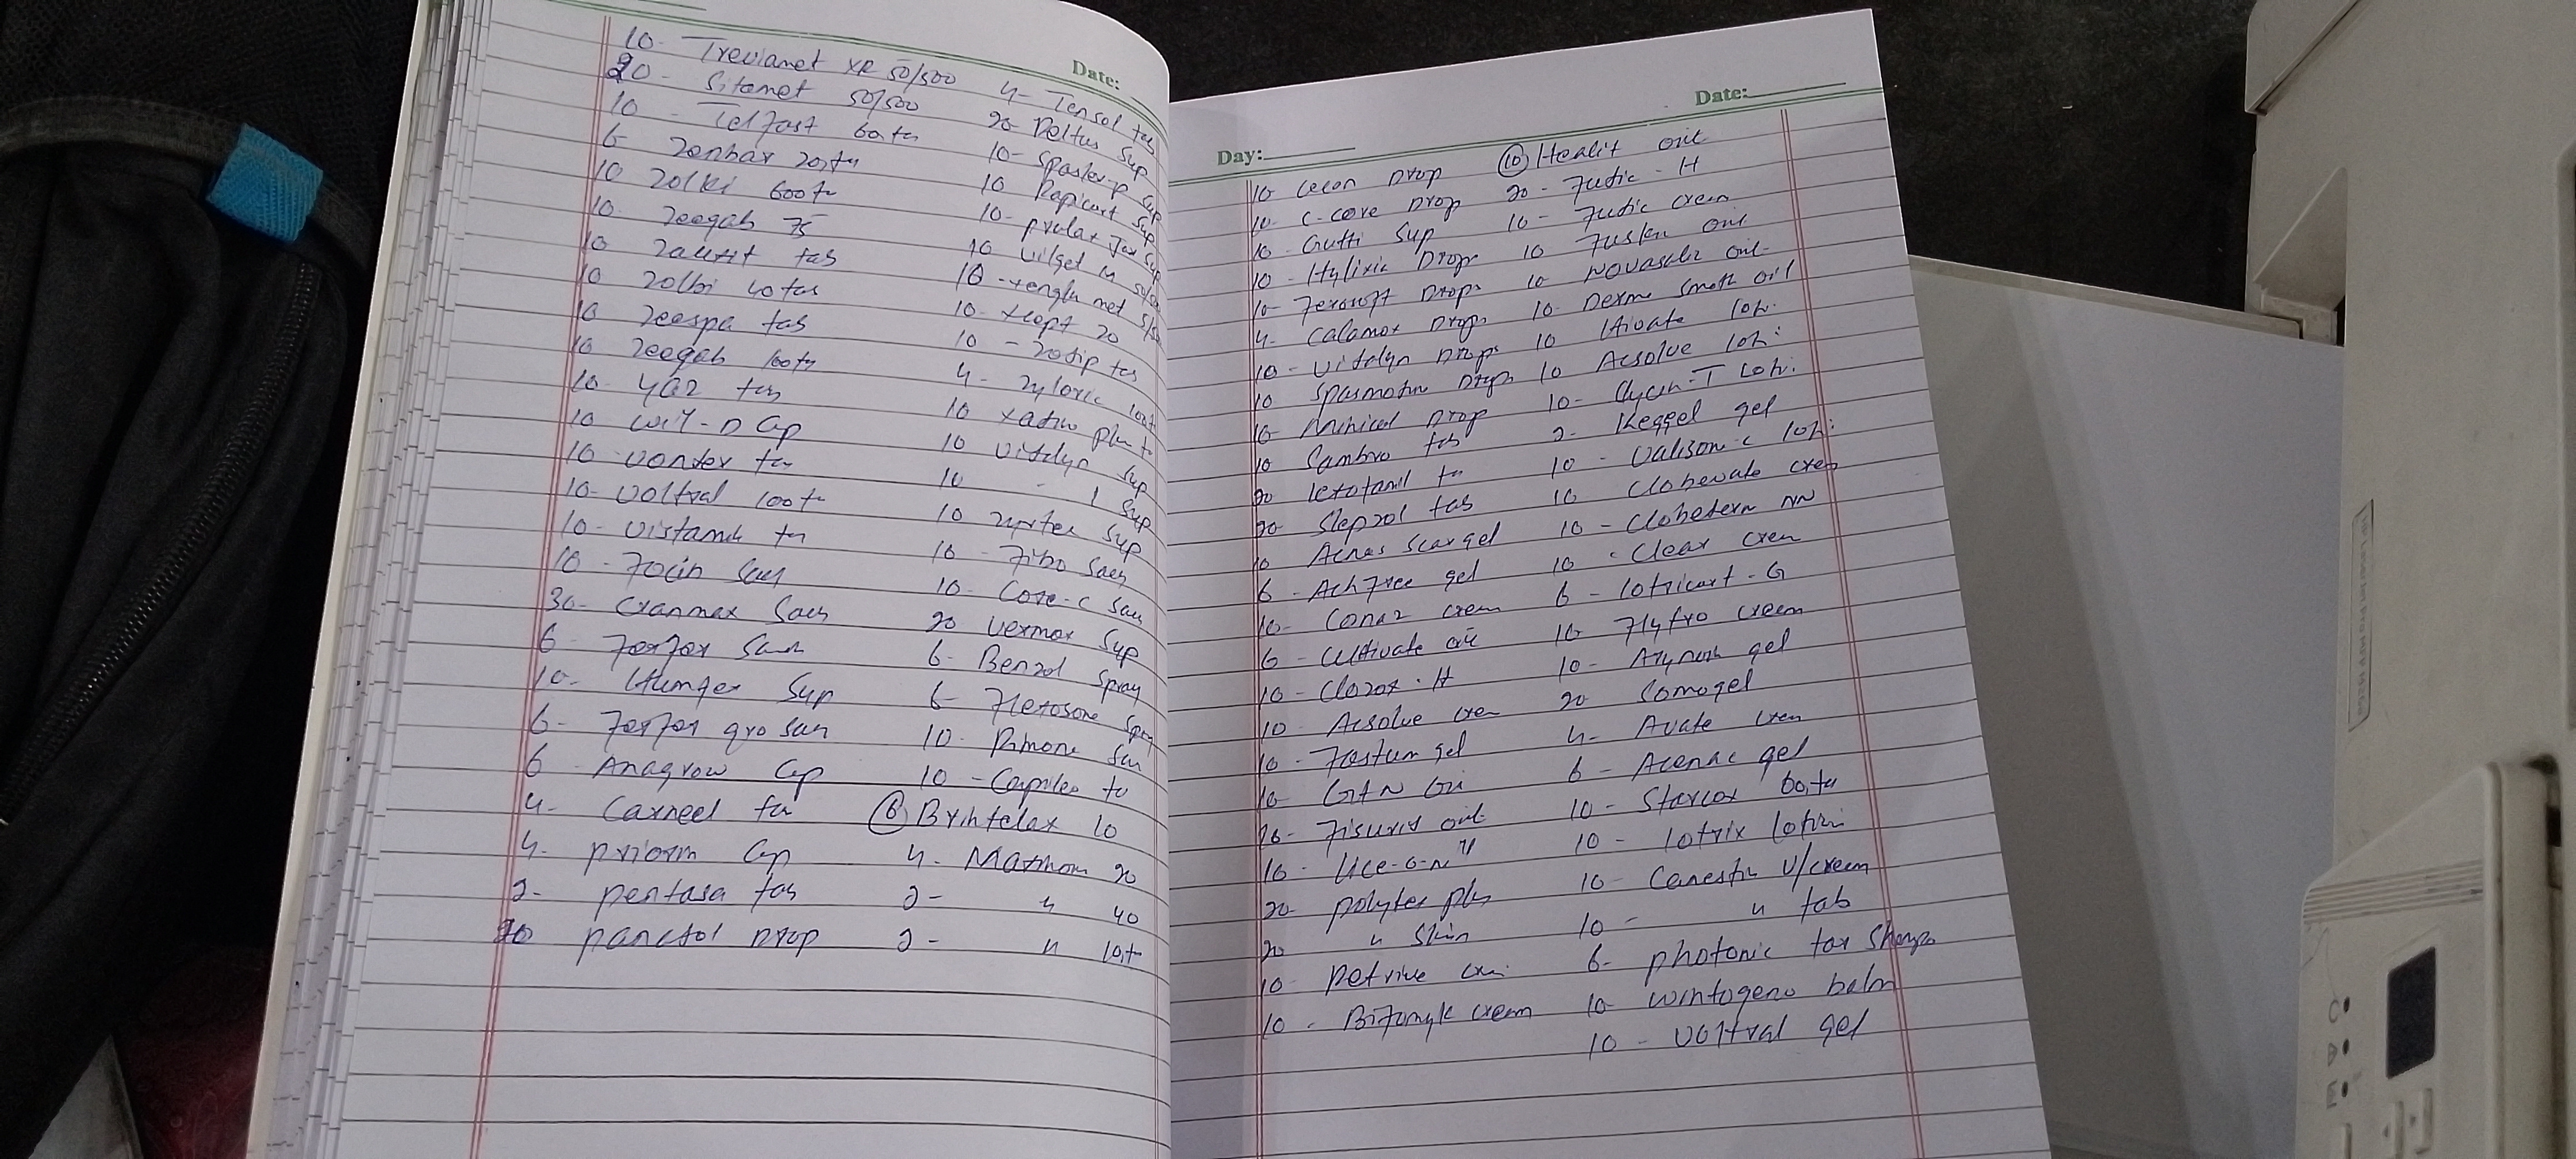 Date:
10- Treviamet XR 50/500
20- Sitamet 50/500
10 - Telfast 60 ta
6 Zenbar 20 ta
10 Zolki 600 ta
10- Zeegab 75
10 tab
10 Zolbi 40 tas
10 Zeespa tab
10 Zeegab 100 ta
10- YAZ tas
10 Wil-D Cap
10 Vonder ta
10- Voltral 100 ta
10- Vistamin ta
10 - Focin Sach
30- Cranmax Sach
6- Forfor Sach
10- Hunger Sup
6- Forfor gro Sach
6 - Anagrow Cap
4- Carneel ta
4- Priorin Cap
2- Pentasa tab
20 Panadol Drop
4- Tensol tab
20- Deltus Sup
10- Spasler-P Sup
10 Rapicort Sup
10- Pvular Sup
10 Vilget M 50/
10 - Xenglu met 5/
10- Xcept 20
10 - Zodip tas
4- Zyloric 100
10 Plus ta
10 Vitalyn Sup
10 - 1 Sup
10 Zyrtec Sup
10 - Fibo Sach
10- Core-C Sach
20 Vermox Sup
6- Benzol Spray
6- Flexosone Spray
10- Rimone
10 - ta
(6) Brintelax 10
4- 20
2- " 40
2- " 10 ta
Day:
Date:
10 Cecon Drop
10- C-core Drop
10- Gutti Sup
10 - Hylixia Drop
10- Ferosoft Drops
4- Calamox Drops
10 - Vitalyn Drops
10 Spasmotin Drops
10- Minical Drop
10 Cambro tab
20 Lexotanil ta
20- Slepzol tab
10 Acnas Scar gel
6 - Ach Free gel
10- Conaz cream
6 - Cutivate oit
10 - Clozox-H
10 Acsolve crem
10 - Fastum gel
10- GTN Oin
10- Fisuris oit
10- Lice-o-nil
20- Polytex plus
20 " Skin
10- Petrive crem
10 - Bifomyk cream
(10) Healit oit
20 - Fudic-H
10 - Fudic cream
10 oit
10 Novasalic oit
10- Derma Smoth oil
10 Hivate loti:
10 Acsolve loti:
10- Clycin-T Loti:
2- Keggel gel
10 - Valison-C loti:
10 Clobevate crem
10 - Clobederm NN
10 - Clear Crem
6 - Lotricort-G
10 Hyfro cream
10- gel
20 Comogel
4- Avate crem
6 - Acenac gel
10 - Starcox 60 ta
10 - Lotrix lotion
10- Canestin V/cream
10 - " tab
6- Photonic tar Shampo
10- Wintogeno balm
10 - Voltral gel